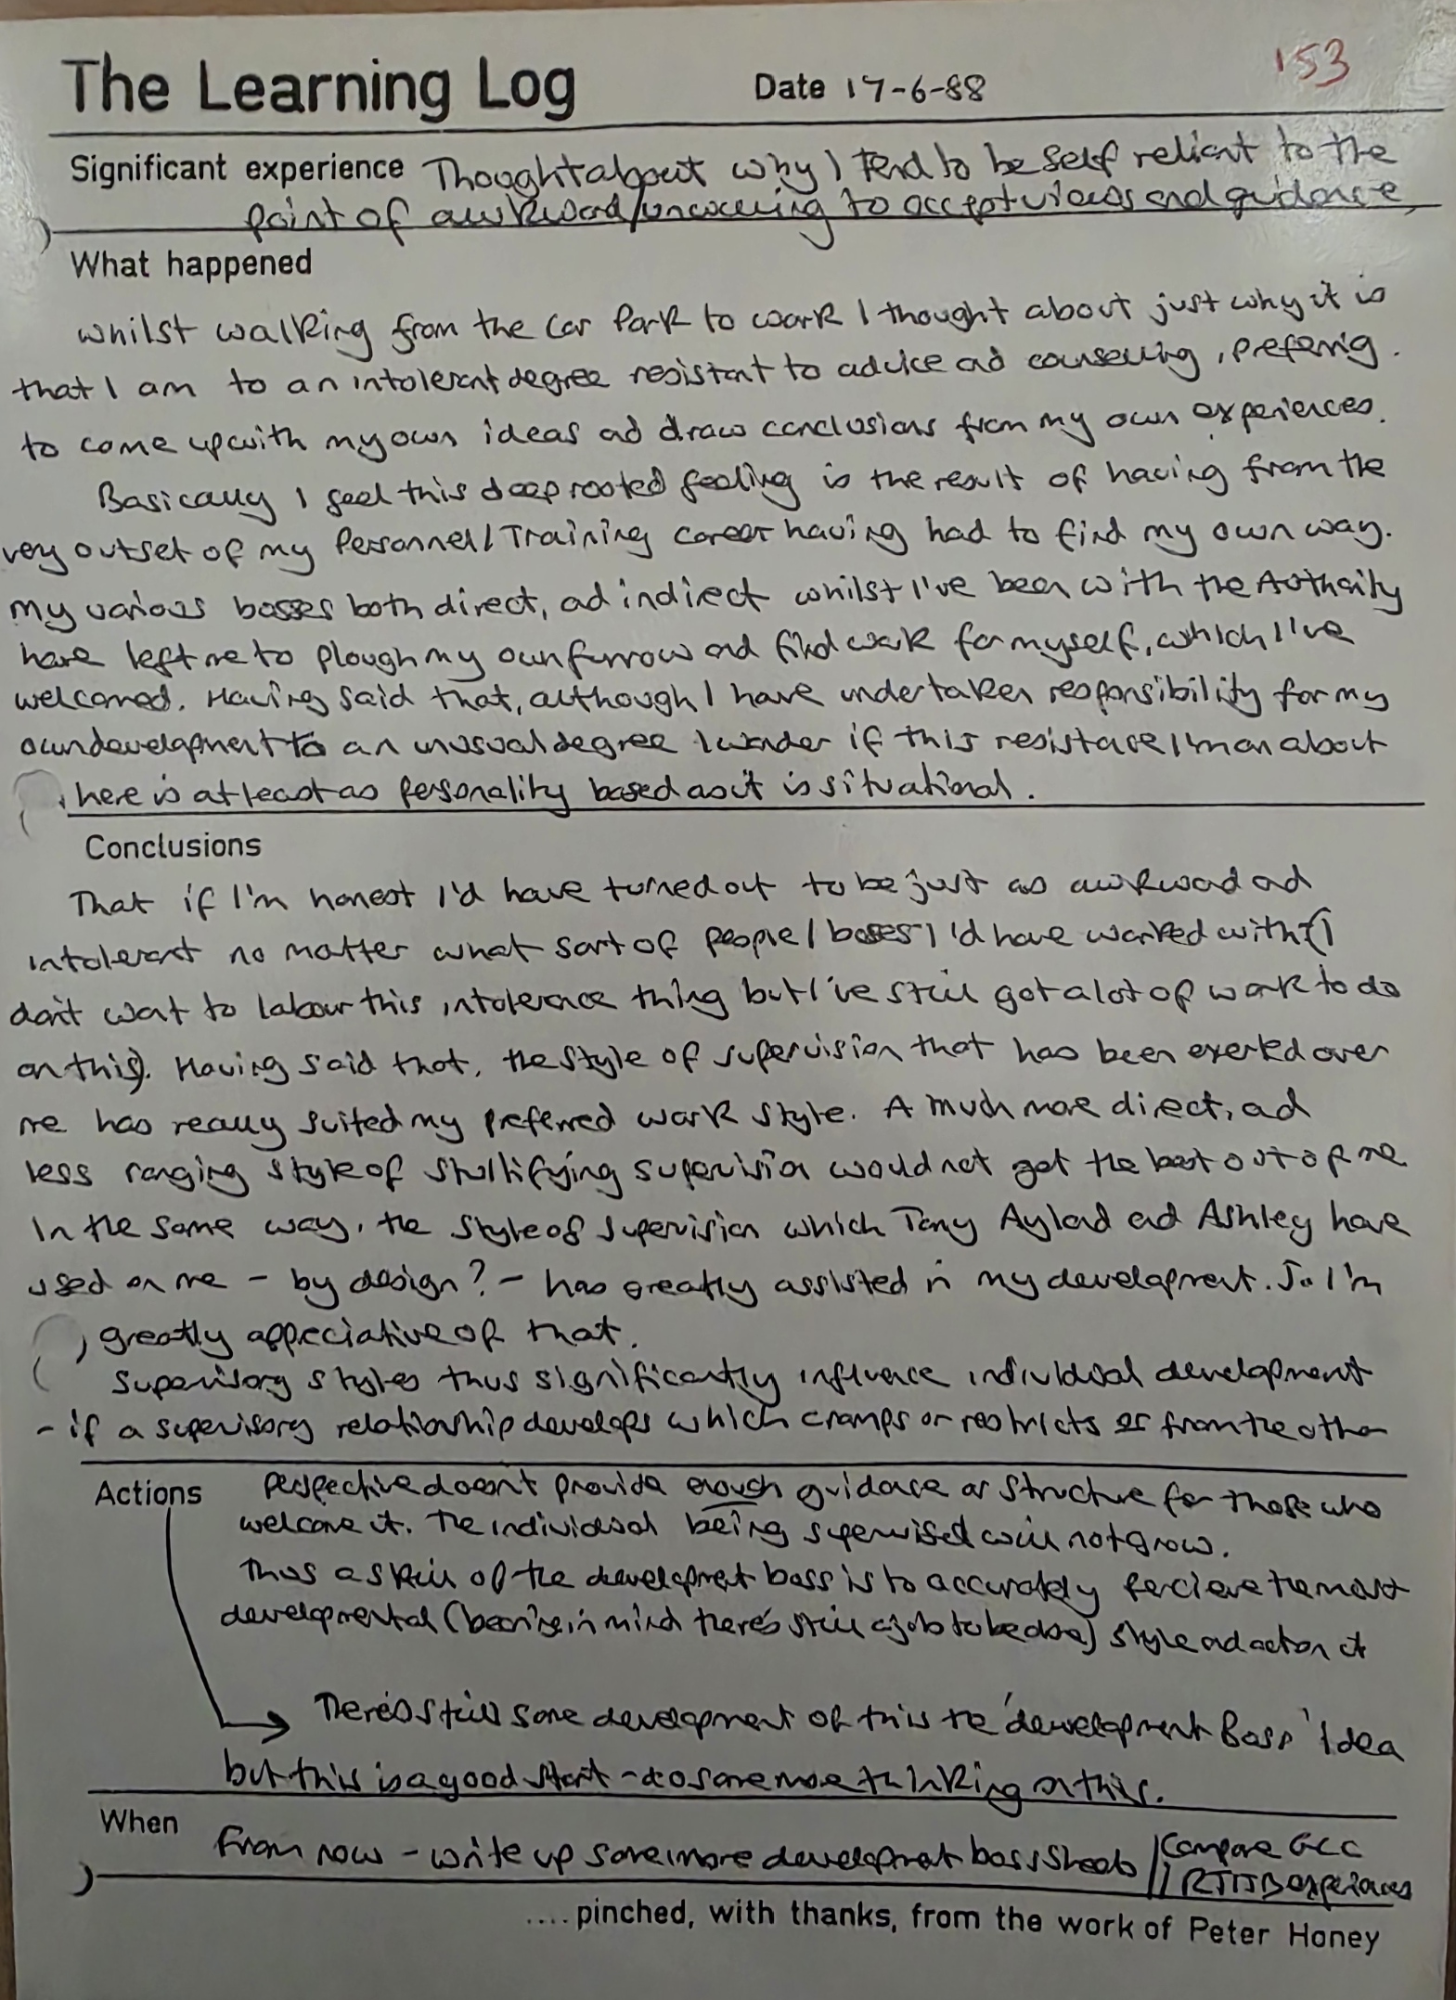 The Learning Log Date 17-6-88 153
Significant experience Thought about why I tend to be self reliant to the
point of awkward/uncaring to accept views and guidance,
What happened
whilst walking from the Car Park to work I thought about just why it is
that I am to an intolerant degree resistant to advice ad counselling, prefering
to come up with my own ideas ad draw conclusions from my own experiences.
Basically I feel this deep rooted feeling is the result of having from the
very outset of my Personnel/Training career having had to find my own way.
my various bosses both direct, ad indirect whilst I've been with the Authority
have left me to plough my own furrow ad find work for myself, which I've
welcomed. Having said that, although I have undertaken responsibility for my
own development to an unusual degree I wonder if this resistance I'm on about
here is at least as personality based as it is situational.
Conclusions
That if I'm honest I'd have turned out to be just as awkward ad
intolerant no matter what sort of people/bosses I'd have worked with (I
don't want to labour this intolerance thing but I've still got a lot of work to do
on this). Having said that, the style of supervision that has been exerted over
me has really suited my preferred work style. A much more direct, ad
less ranging style of stultifying supervision would not get the best out of me
In the same way, the style of supervision which Tony Aylad ad Ashley have
used on me - by design? - has greatly assisted in my development. So I'm
greatly appreciative of that.
Supervisory styles thus significantly influence individual development
- if a supervisory relationship develops which cramps or restricts or from the other
Actions perspective doesn't provide enough guidance or structure for those who
welcome it. The individual being supervised will not grow.
Thus a skill of the development boss is to accurately percieve the most
developmental (bearing in mind there's still a job to be done) style ad action it
There's still some development of this the 'development Boss' Idea
but this is a good start - do some more thinking on this.
When From now - write up some more development boss sheets Compare GCC
/ RTITB experiences
.... pinched, with thanks, from the work of Peter Honey